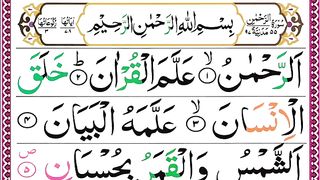 سُوْرَةُ الرَّحْمٰنِ مَدَنِيَّةٌ ٥٥ بِسْمِ اللّٰهِ الرَّحْمٰنِ الرَّحِيْمِ
اَلرَّحْمٰنُ ۙ﴿١﴾ عَلَّمَ الْقُرْاٰنَ ؕ﴿٢﴾ خَلَقَ
الْاِنْسَانَ ۙ﴿٣﴾ عَلَّمَهُ الْبَيَانَ ﴿٤﴾
اَلشَّمْسُ وَالْقَمَرُ بِحُسْبَانٍ ﴿٥﴾